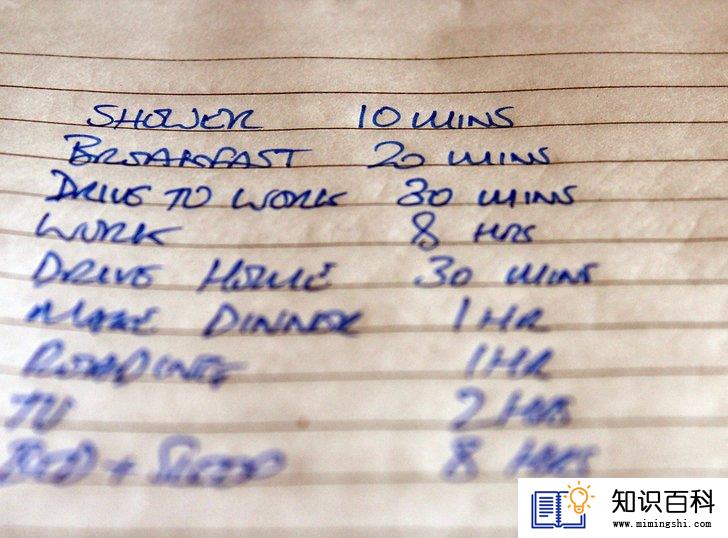 SHOWER 10 MINS
BREAKFAST 20 MINS
DRIVE TO WORK 30 MINS
WORK 8 HRS
DRIVE HOME 30 MINS
MAKE DINNER 1 HR
READING 1 HR
TV 2 HRS
BED + SLEEP 8 HRS
知识百科
www.mimingshi.com